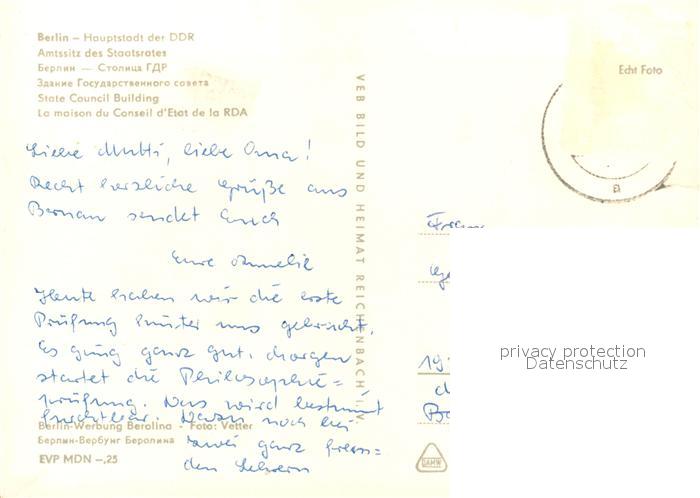 Berlin – Hauptstadt der DDR
Amtssitz des Staatsrates
Берлин — Столица ГДР
Здание Государственного совета
State Council Building
La maison du Conseil d'Etat de la RDA
Echt Foto
a
VEB BILD UND HEIMAT REICHENBACH I. V
Liebe Mutti, liebe Oma!
Recht herzliche Grüße aus
Bernau sendet Euch
Eure Annelie
Heute haben wir die erste
Prüfung hinter uns gebracht.
Es ging ganz gut. Morgen
startet die Philosophie=
prüfung. Das wird bestimmt
furchtbar. Davon noch bei
zwei ganz frem=
den Lehrern
Berlin-Werbung Berolina - Foto: Vetter
Берлин-Вербунг Беролина
EVP MDN –,25
DAMW
19
privacy protection
Datenschutz